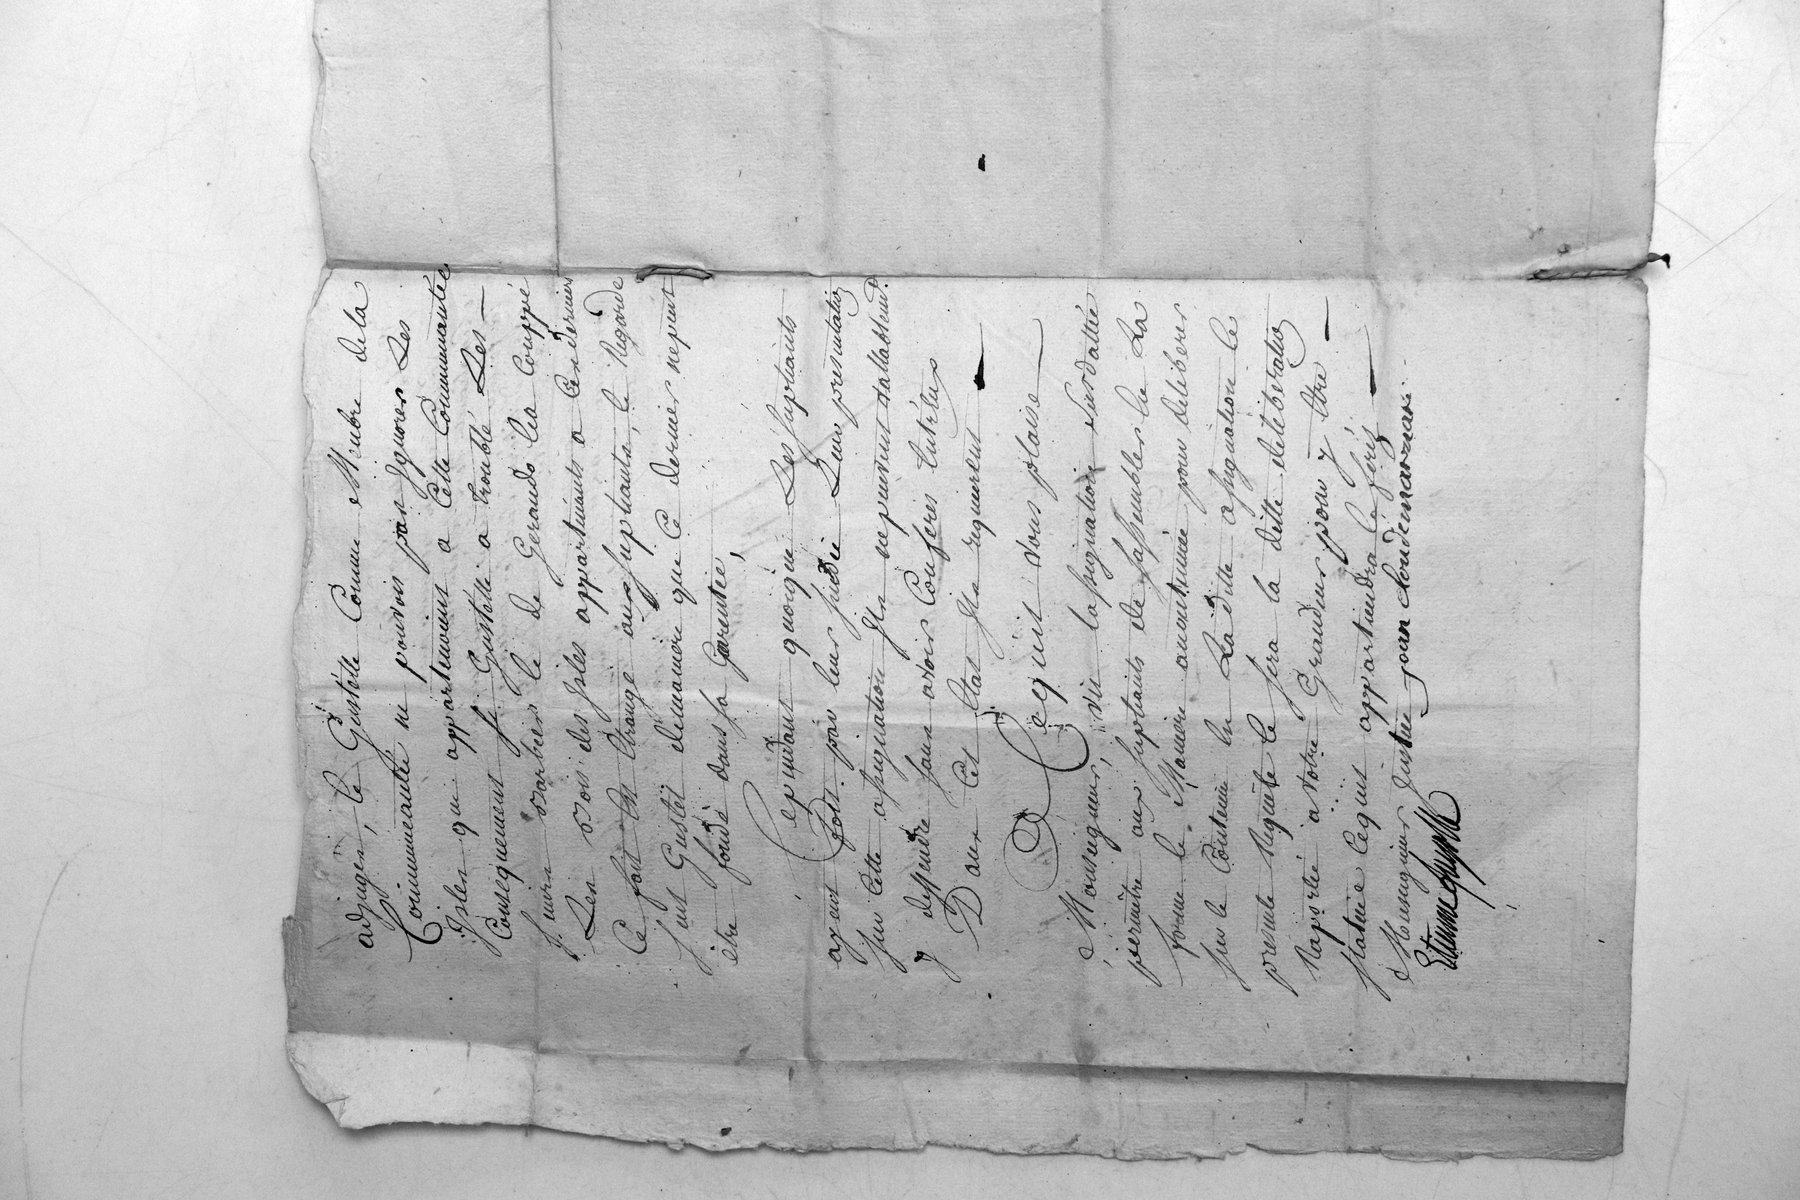 adjuger, le Gustelle Comme Membre dela
Communeauté ne pouvois pas Ignorer Les
Isles qui appartenoient a Cette Communautée
Consequement si Gustelle a troublé Les
sieurs Barbier le de Gerando En la Couppé
Les Bois des Isles appartenants a Ces derniers
Ce fait Est Etrange aux suplians, le Regarde
seul Gustel demaniere que Ce dernier ne peut
être fondé dans sa Garentie,
Cependant quoique Les supliants
ayent Grots par leur sindic Leur presentation
sur Cette assignation Ils ne peuvent valablement
y deffendre sans avoir Conferés Entr'eux
Dans Cet Etat Ils requierent
Cequil vous plaise
Monseigneur, vû lassignation susdattée
permettre aux supliants de sassembler En La
forme & Maniere accoutumée pour deliberer
sur le Contenu En Ladite assignation & le
presente Requête & sera la dette deliberation
Raportée a Votre Grandeur pour y Etre
statué Cequil appartiendra & serés
Monseigneur Justice jean Claude marnas
Etienne